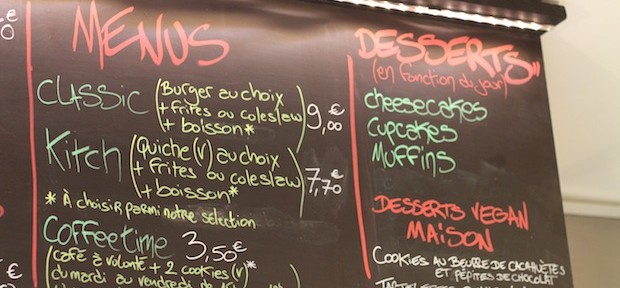 MENUS
CLASSIC (Burger au choix
+ frites ou coleslaw
+ boisson*) 9,00 €
Kitch (Quiche (v) au choix
+ frites ou coleslaw
+ boisson*) 7,70 €
* À choisir parmi notre sélection
Coffee time 3,50 €
(café à volonté + 2 cookies (v)*
du mardi au vendredi de
DESSERTS
(en fonction du jour)
cheesecakes
cupcakes
Muffins
DESSERTS VEGAN
MAISON
COOKIES AU BEURRE DE CACAHUÈTES
ET PÉPITES DE CHOCOLAT